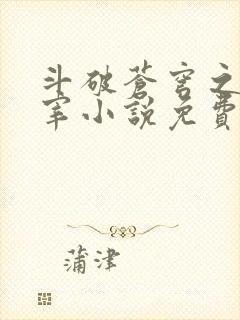 斗破蒼穹之
宰小說免費
蒲津